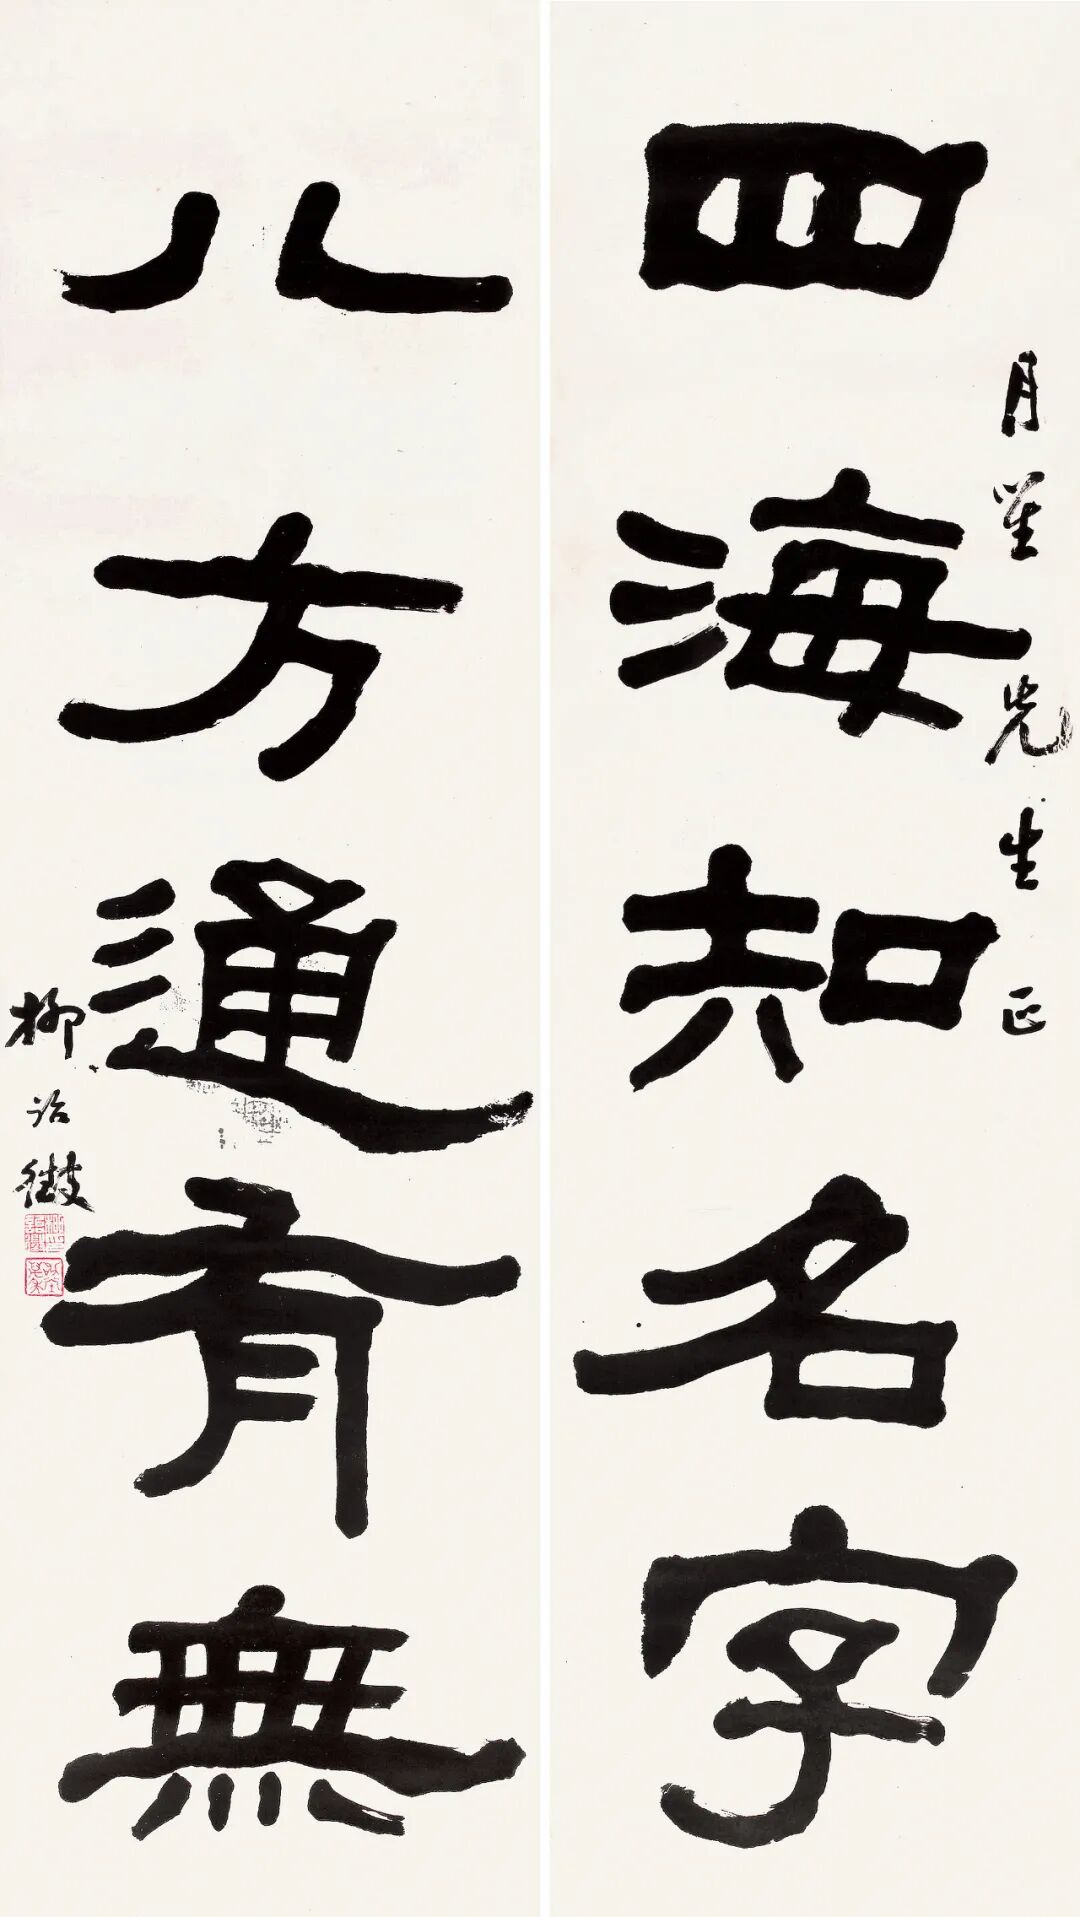 四海知名字
月笙先生正
八方通有無
柳詒徵